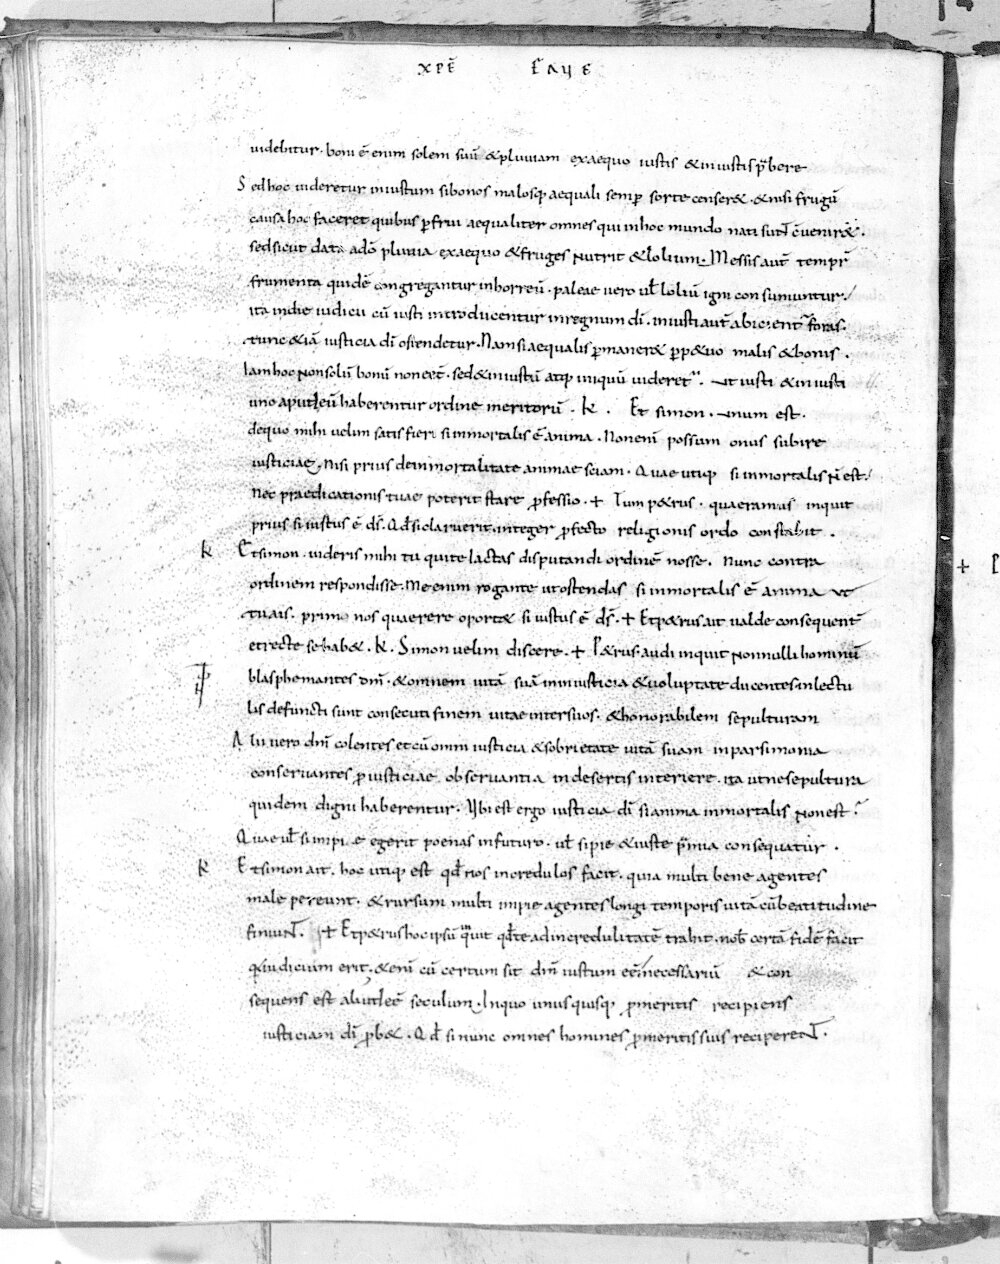 xpē ſаlуе
uidebitur. boni ē enim solem suū &pluuiam exaequo iustis &iniustis p̄bere
Sedhoc uideretur iniustum sibonos malosq; aequali semp sorte censer&. &nisi frugū
causa hoc faceret quibus pfrui aequaliter omnes qui inhoc mundo nati sunt cuenir&.
sedsicut data adō pluuia exaequo &fruges nutrit &lolium. Messis aut tempr̄
frumenta quidē congregantur inhorreū. paleae uero ul loliū igni consumuntur.
ita indie iudicii cū iusti introducentur inregnum dī. iniusti aut abicientr foras.
tunc &iā iusticia dī ostendetur. Nam si aequalis pmaner& pp&uo malis &bonis.
Iam hoc nonsolū bonū noneēt. sed&iniustū atq; iniquū uideret. ut iusti &iniusti
uno aput eū haberentur ordine meritorū. k. Et simon. unum est.
dequo mihi uelim satisfieri siinmortalis ē anima. Nonenī possum onus subire
iusticiae, nisi prius deinmortalitate animae sciam. Quae utiq; si inmortalis n̄ est.
nec praedicationis tuae poterit stare pfessio. + Tum p&rus. quaeramus inquit
prius si iustus ē dī. Qd si claruerit. integer pfecto religionis ordo constabit.
k Etsimon. uideris mihi tu quite iactas disputandi ordinē nosse. nunc contra
ordinem respondisse. Me enim rogante utostendas si inmortalis ē anima ut
tu ais. primo nos quaerere oport& si iustus ē dī. + Etp&rus ait ualde consequent
etrecte sehab&. k. Simon uelim discere. + P&rus. audi inquit nonnulli hominū
blasphemantes dnī. &omnem uitā suā ininiusticia &uoluptate ducentes inlectu
lis defuncti sunt consecuti finem uitae intersuos. &honorabilem sepulturam
Alii uero dnī colentes etcū omni iusticia &sobrietate uitā suam inparsimonia
conseruantes p iusticiae obseruantia indesertis interiere. ita utnesepultura
quidem digni haberentur. Ubi est ergo iusticia dī sianima inmortalis nonest?
Quae ul siimpie egerit poenas infuturo. ul sipie &iuste p̄mia consequatur.
k Etsimon ait. hoc utiq; est qd nos incredulos facit. quia multi bene agentes
male pereunt. &rursum multi impie agentes longi temporis uitā cū beatitudine
finiunt. + Etp&rus hoc ipsū inquit qdte adincredulitatē trahit. nob certā fidē facit
qd iudicium erit. &enī cū certum sit dnī iustum eē. necessariū &con
sequens est aliud eē seculum. Inquo unusquisq; pmeritis recipiens
iusticiam dī pb&. Qd si nunc omnes homines pmeritis suis reciperent.